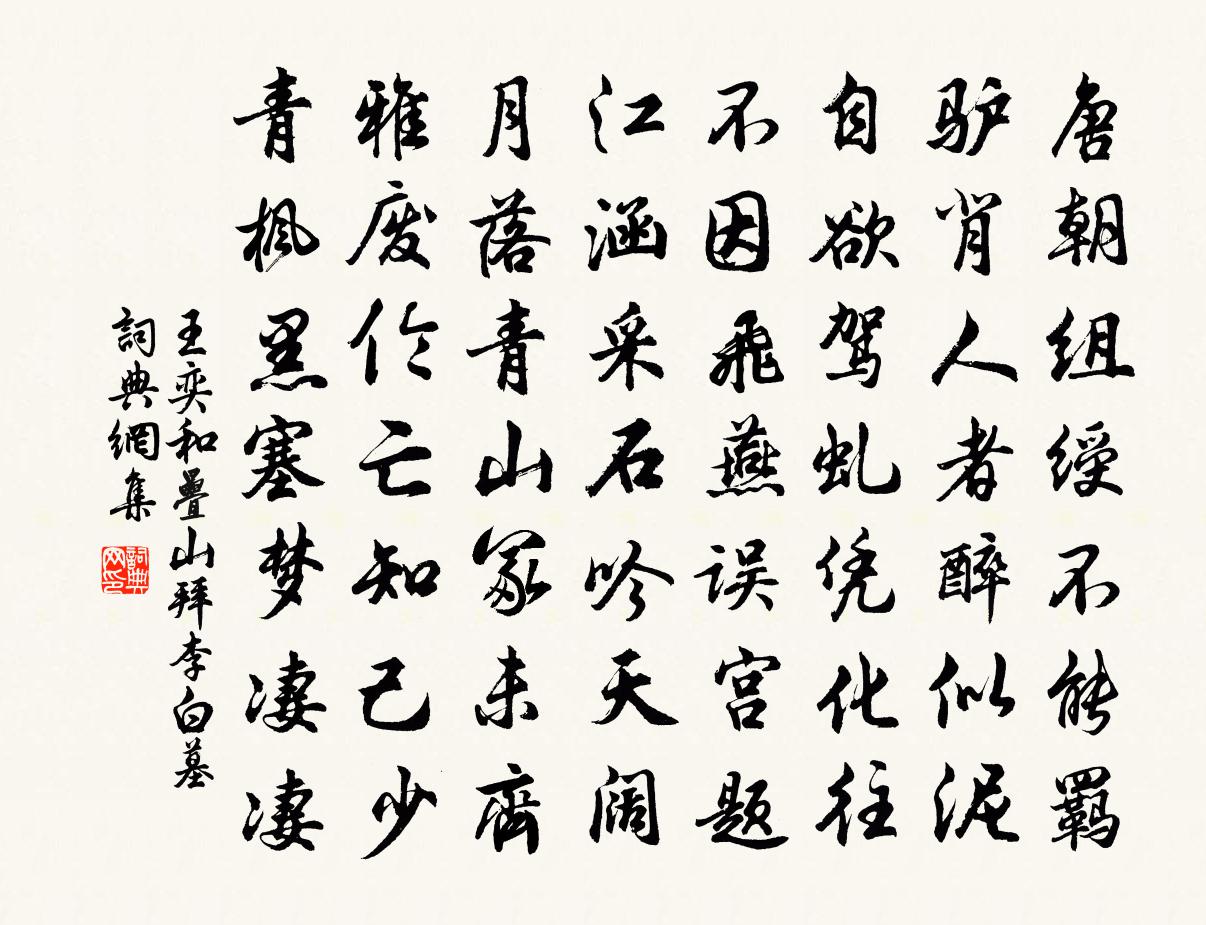 唐朝组绶不能羁
驴肖人者醉似泥
自欲驾虬凭化往
不因飛燕误宫题
江涵采石吟天阔
月落青山冢未齊
雅废伶亡知己少
青枫黑塞梦凄凄
王奕和疊山拜李白墓
詞典網集